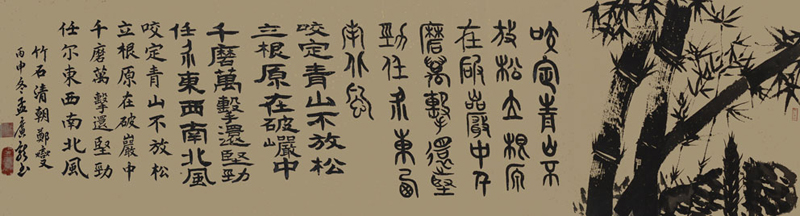 咬定青山不
放松立根原
在破巖中千
磨萬擊還堅
勁任尔東西
南北風
咬定青山不放松
立根原在破巖中
千磨萬擊還堅勁
任尔東西南北風
咬定青山不放松
立根原在破巖中
千磨萬擊還堅勁
任尔東西南北風
竹石清朝鄭燮
丙申冬孟廣書